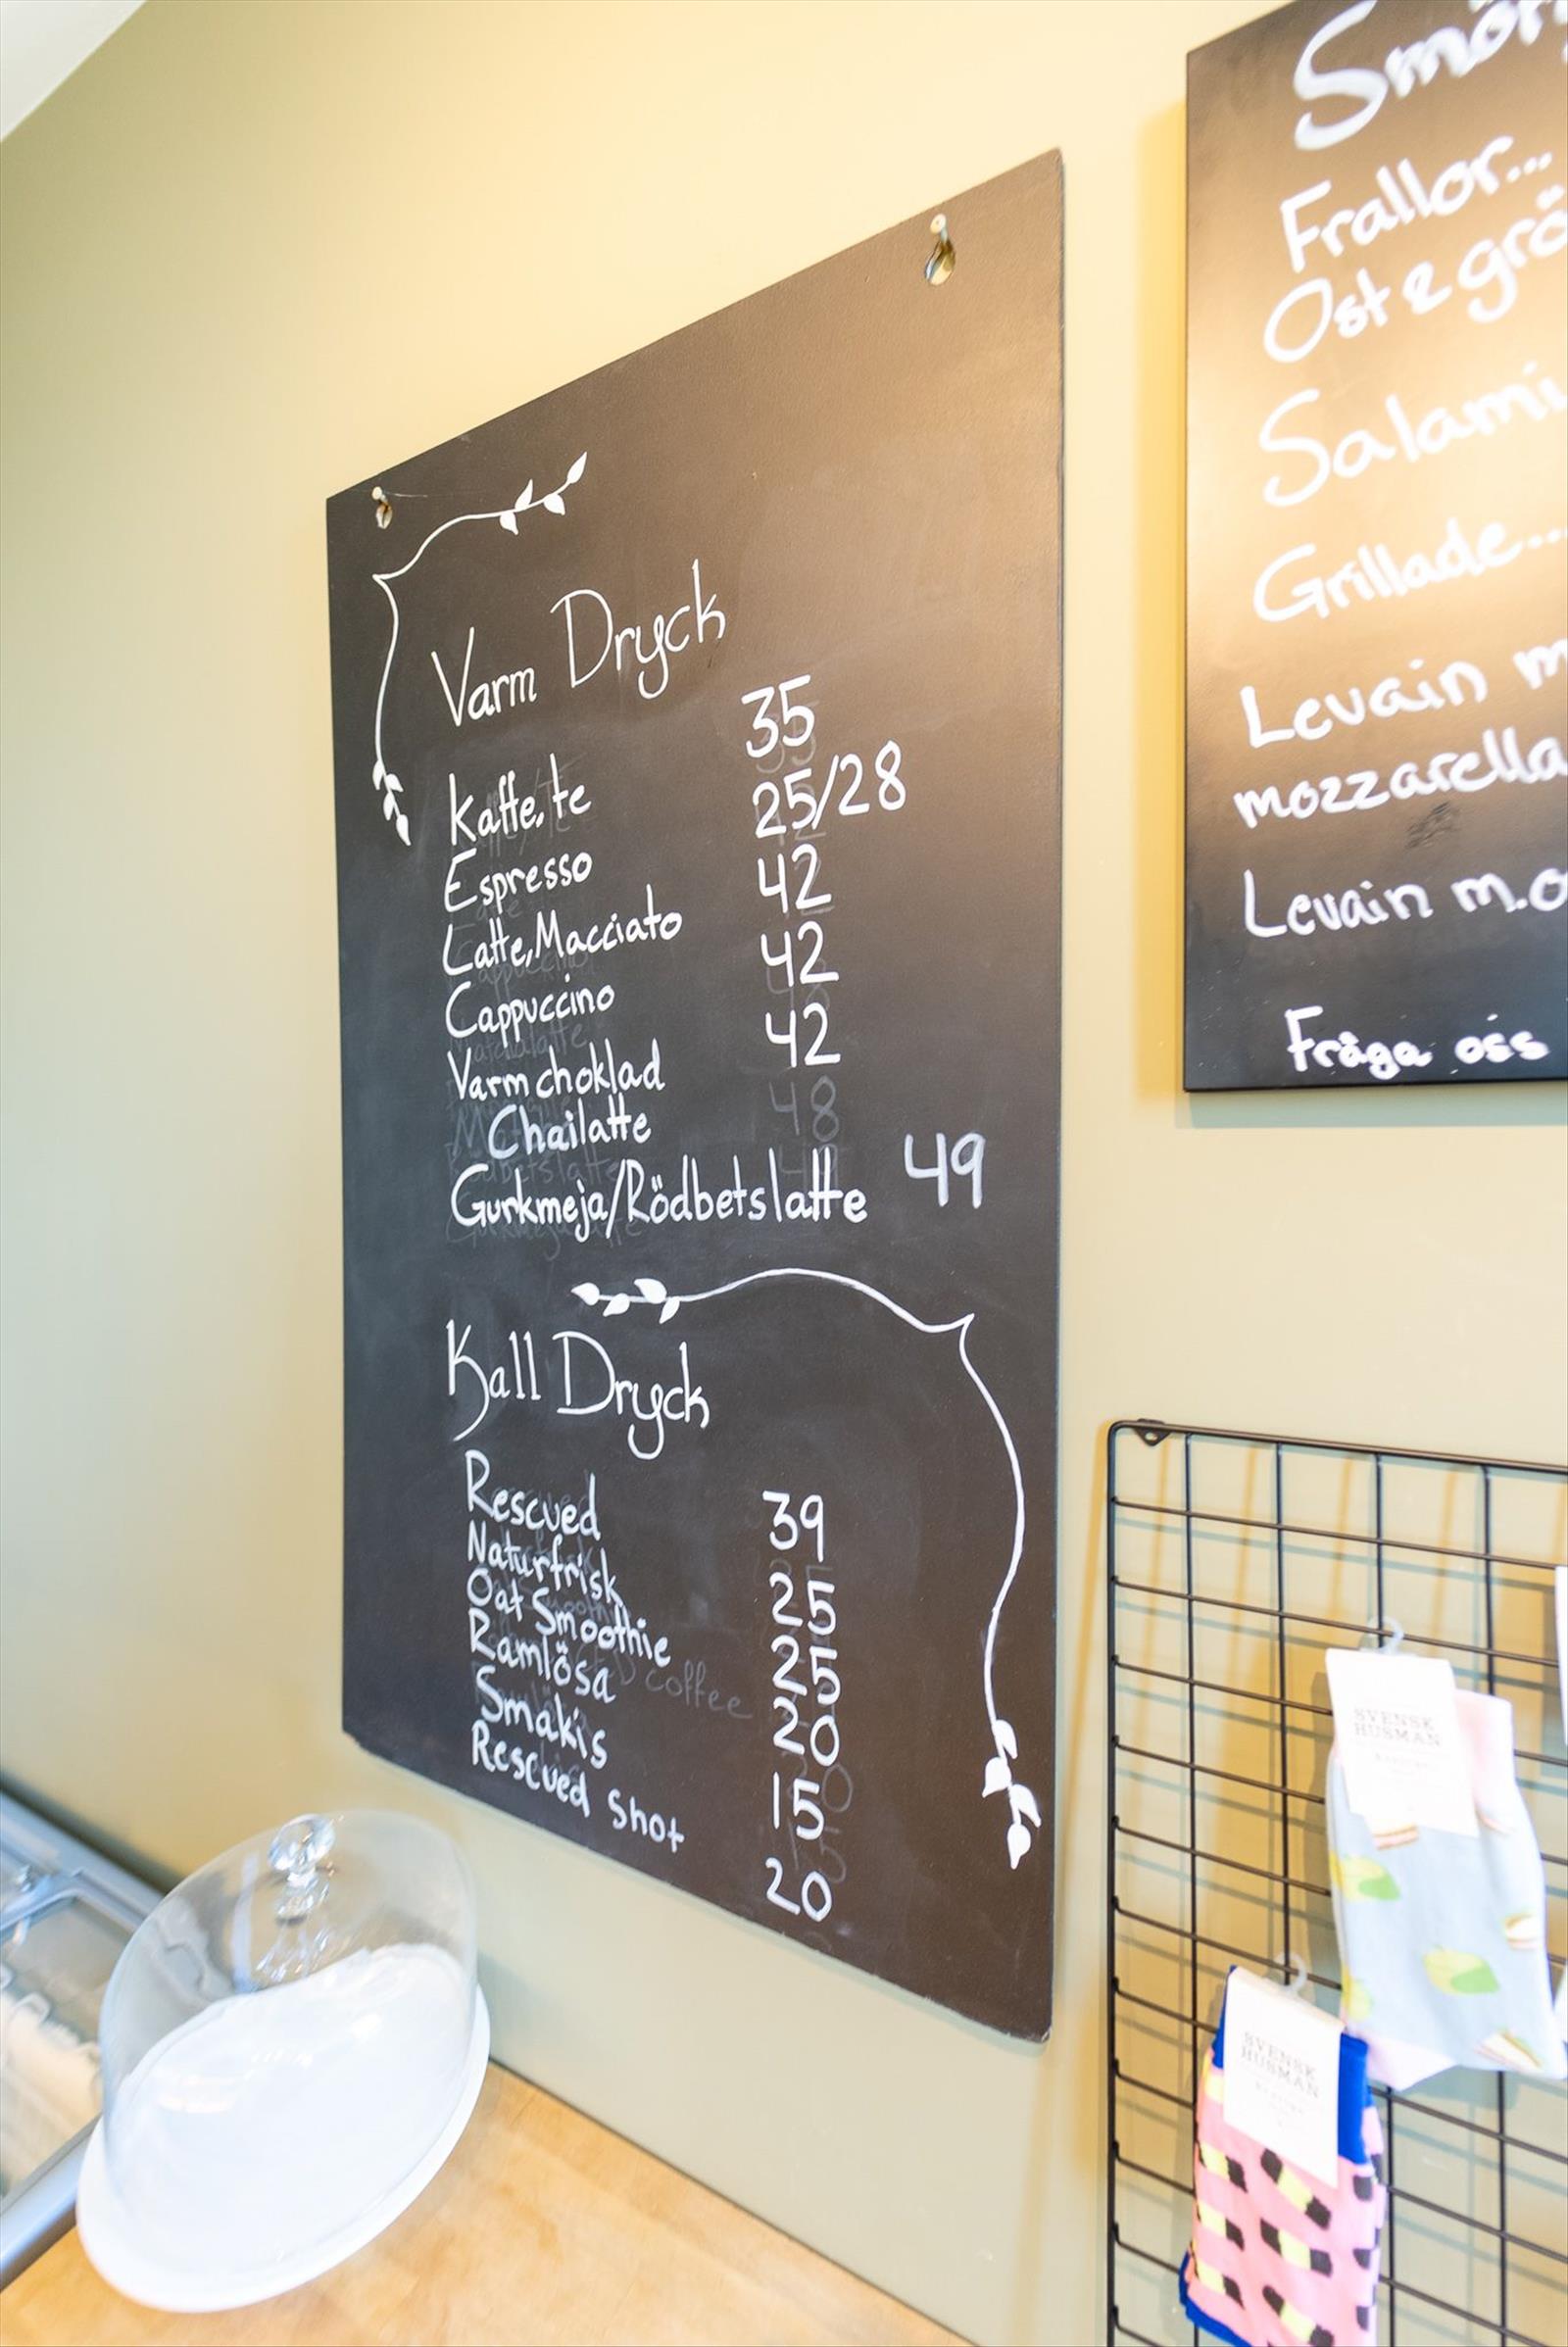 Varm Dryck
Kaffe, te 35
Espresso 25/28
Latte, Macciato 42
Cappuccino 42
Varm choklad 42
Chailatte
Gurkmeja/Rödbetslatte 49
Kall Dryck
Rescued 39
Naturfrisk 25
Oat Smoothie 25
Ramlösa 20
Smakis 15
Rescued shot 20
Frallor...
Ost & grö
Salami
Grillade...
Levain m
mozzarella
Levain m.o
Fråga oss
SVENSK
HUSMAN
SVENSK
HUSMAN